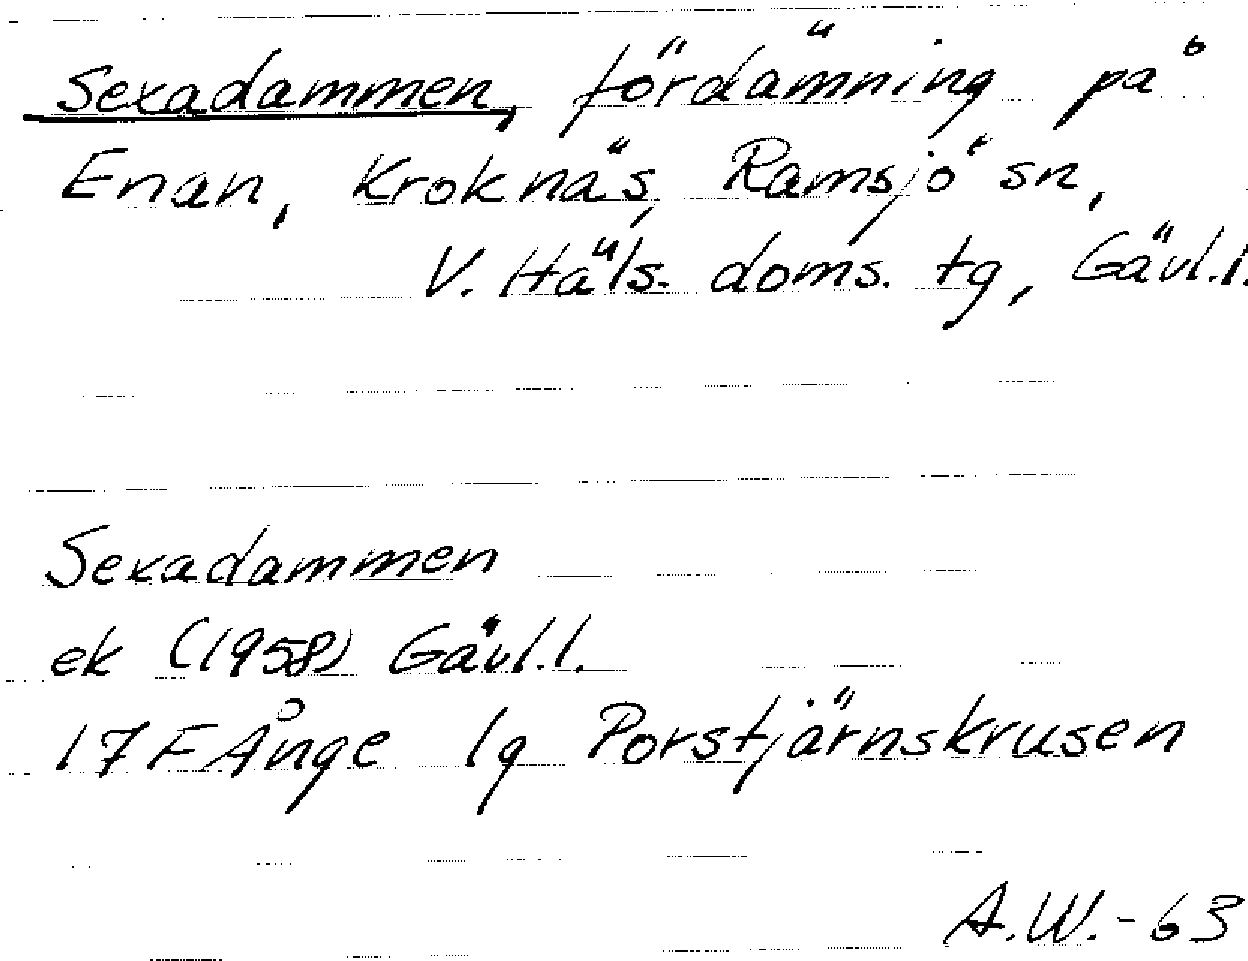 Sexadammen, fördämning på
Enan, Kroknäs, Ramsjö sn,
V. Häls. doms. tg, Gävl.l.
Sexadammen
ek (1958) Gävl.l.
17F Ånge 1g Porstjärnskrusen
A.W.-63